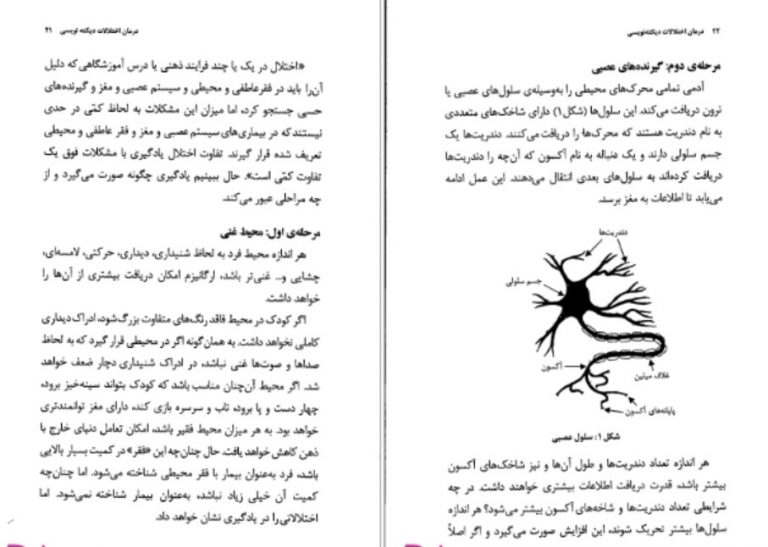 درمان اختلالات دیکته نویسی ۲۱
«اختلال در یک یا چند فرایند ذهنی یا درس آموزشگاهی که دلیل
آن‌را باید در فقر عاطفی و محیطی و سیستم عصبی و مغز و گیرنده‌های
حسی جستجو کرد، اما میزان این مشکلات به لحاظ کمّی در حدی
نیستند که در بیماری‌های سیستم عصبی و مغز و فقر عاطفی و محیطی
تعریف شده قرار گیرند. تفاوت اختلال یادگیری با مشکلات فوق یک
تفاوت کمّی است». حال ببینیم یادگیری چگونه صورت می‌گیرد و از
چه مراحلی عبور می‌کند.
مرحله‌ی اول: محیط غنی
هر اندازه محیط فرد به لحاظ شنیداری، دیداری، حرکتی، لامسه‌ای،
چشایی و... غنی‌تر باشد، ارگانیزم امکان دریافت بیشتری از آن‌ها را
خواهد داشت.
اگر کودک در محیط فاقد رنگ‌های متفاوت بزرگ شود، ادراک دیداری
کاملی نخواهد داشت. به همان‌گونه اگر در محیطی قرار گیرد که به لحاظ
صداها و صوت‌ها غنی نباشد، در ادراک شنیداری دچار ضعف خواهد
شد. اگر محیط آن‌چنان مناسب باشد که کودک بتواند سینه‌خیز برود،
چهار دست و پا برود، تاب و سرسره بازی کند، دارای مغز توانمندتری
خواهد بود. به هر میزان محیط فقیر باشد، امکان تعامل دنیای خارج با
ذهن کاهش خواهد یافت. حال چنان‌چه این «فقر» در کمیت بسیار بالایی
باشد، فرد به‌عنوان بیمار با فقر محیطی شناخته می‌شود. اما چنان‌چه
کمیت آن خیلی زیاد نباشد، به‌عنوان بیمار شناخته نمی‌شود. اما
اختلالاتی را در یادگیری نشان خواهد داد.
۲۲ درمان اختلالات دیکته‌نویسی
مرحله‌ی دوم: گیرنده‌های عصبی
آدمی تمامی محرک‌های محیطی را به‌وسیله‌ی سلول‌های عصبی یا
نرون دریافت می‌کند. این سلول‌ها (شکل ۱) دارای شاخک‌های متعددی
به نام دندریت هستند که محرک‌ها را دریافت می‌کنند. دندریت‌ها یک
جسم سلولی دارند و یک دنباله به نام آکسون که آن‌چه را دندریت‌ها
دریافت کرده‌اند به سلول‌های بعدی انتقال می‌دهند. این عمل ادامه
می‌یابد تا اطلاعات به مغز برسد.
دندریت‌ها
جسم سلولی
آکسون
غلاف میلین
پایانه‌های آکسون
شکل ۱: سلول عصبی
هر اندازه تعداد دندریت‌ها و طول آن‌ها و نیز شاخک‌های آکسون
بیشتر باشد، قدرت دریافت اطلاعات بیشتری خواهند داشت. در چه
شرایطی تعداد دندریت‌ها و شاخه‌های آکسون بیشتر می‌شود؟ هر اندازه
سلول‌ها بیشتر تحریک شوند، این افزایش صورت می‌گیرد و اگر اصلاً